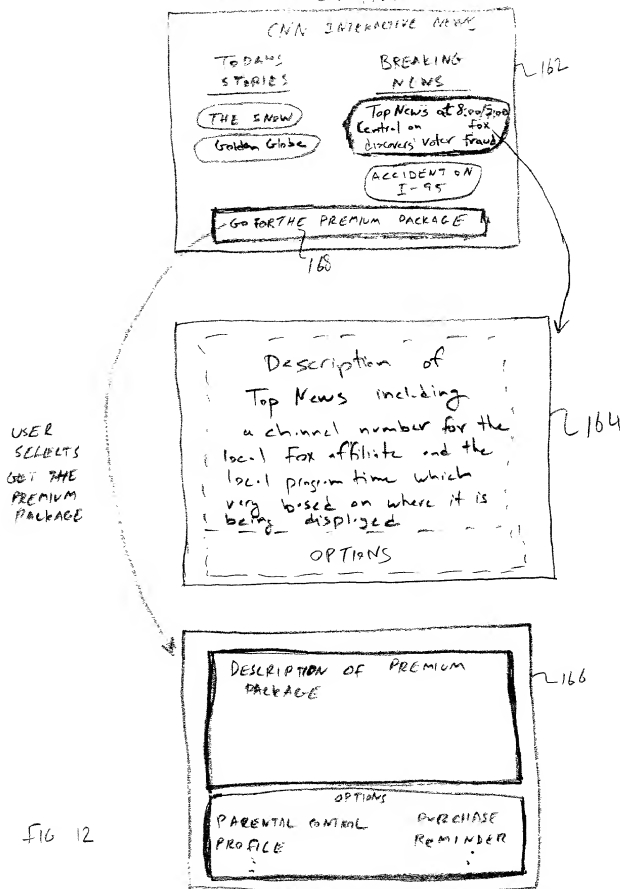 CNN INTERACTIVE NEWS
TODAYS
STORIES
BREAKING
NEWS
162
THE SNOW
Golden Globe
Top News at 8:00/7:00
Central on fox
discovers voter fraud
ACCIDENT ON
I-95
GO FOR THE PREMIUM PACKAGE
168
Description of
Top News including
a channel number for the
local Fox affiliate and the
local program time which
very based on where it is
being displayed
OPTIONS
164
USER
SELECTS
GET THE
PREMIUM
PACKAGE
DESCRIPTION OF PREMIUM
PACKAGE
166
OPTIONS
PARENTAL CONTROL
PROFILE
PURCHASE
REMINDER
FIG 12